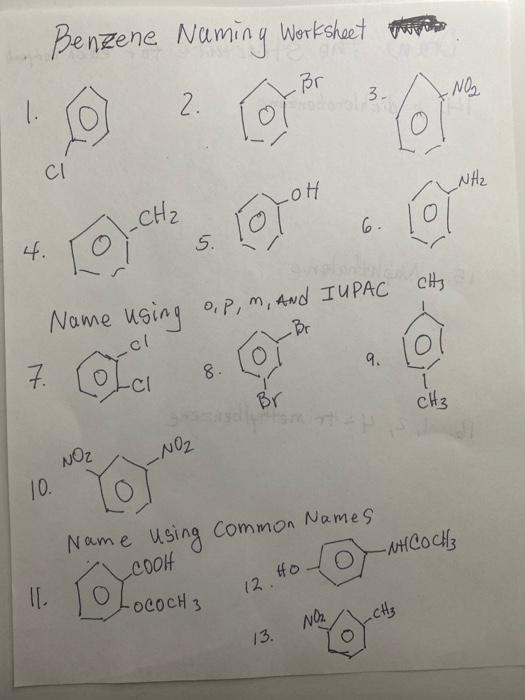 Benzene Naming Worksheet
1. Cl
2. Br
3. NO2
4. CH2
5. OH
6. NH2
Name using o, p, m, And IUPAC
7. Cl Cl
8. Br Br
9. CH3 CH3
10. NO2 NO2
Name using common Names
11. COOH OCOCH3
12. HO NHCOCH3
13. NO2 CH3